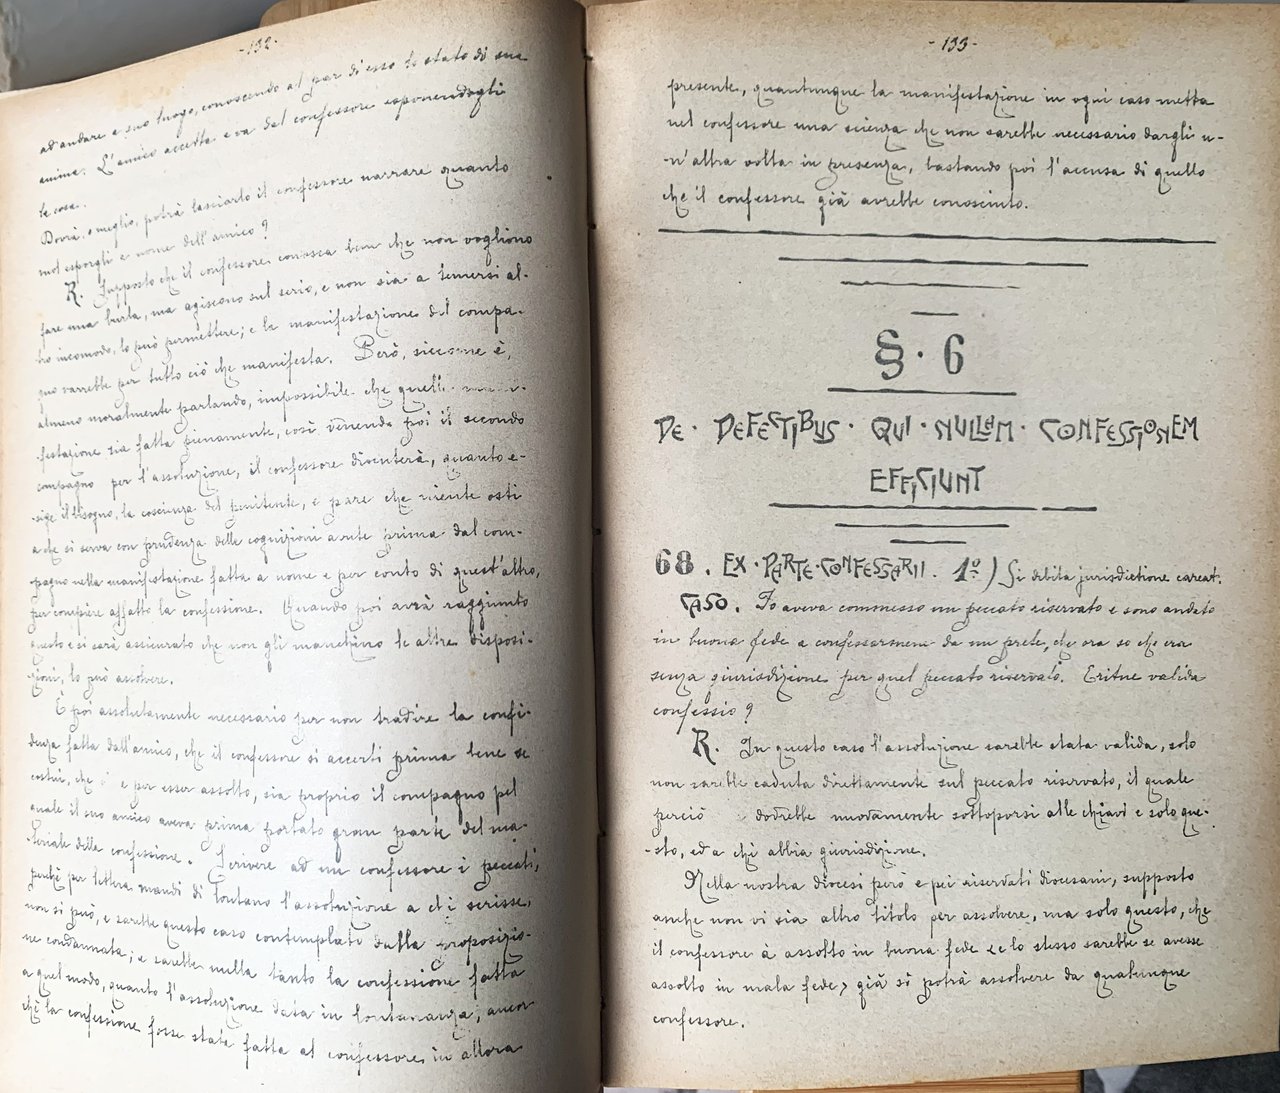 -132-
ad andare e suo luogo, conoscendo al par di esso lo stato di sua
anima. L'amico accetta e va dal confessore esponendogli
la cosa.
Dovrà, o meglio, potrà lasciarlo il confessore narrare quanto
vuol esporgli a nome dell'amico?
R. Supposto che il confessore conosca bene che non vogliono
fare una burla, ma agiscono sul serio, e non sia a temersi al-
tro incomodo, lo può permettere; e la manifestazione del compa-
gno varrebbe per tutto ciò che manifesta. Però, siccome è,
almeno moralmente parlando, impossibile che quella
festazione sia fatta pienamente, così venendo poi il secondo
compagno per l'assoluzione, il confessore discuterà, quanto e-
sige il bisogno, la coscienza del penitente, e pare che niente osti
a che si serva con prudenza delle cognizioni avute prima dal com-
pagno nella manifestazione fatta a nome e per conto di quest'altro,
per compire affatto la confessione. Quando poi avrà raggiunto
questo e si sarà assicurato che non gli manchino le altre disposi-
zioni, lo può assolvere.
È poi assolutamente necessario per non tradire la confi-
denza fatta dall'amico, che il confessore si accerti prima bene se
costui, che è per esser assolto, sia proprio il compagno pel
quale il suo amico aveva prima portato gran parte del ma-
teriale della confessione. Scrivere ad un confessore i peccati,
perchè per lettera mandi di lontano l'assoluzione a chi scrisse,
non si può, e sarebbe questo caso contemplato dalla proposizio-
ne condannata; e sarebbe nulla tanto la confessione fatta
a quel modo, quanto l'assoluzione data in lontananza, ancor
chè la confessione fosse stata fatta al confessore in allora
-133-
presente, quantunque la manifestazione in ogni caso metta
nel confessore una scienza che non sarebbe necessario dargli u-
-n'altra volta in presenza, bastando poi l'accusa di quello
che il confessore già avrebbe conosciuto.
§. 6
DE· DEFECTIBUS· QUI· NULLAM· CONFESSIONEM
EFFICIUNT
68. EX·PARTE·CONFESSARII. 1º) Si debita jurisdictione careat.
CASO. Io aveva commesso un peccato riservato e sono andato
in buona fede a confessarmene da un prete, che ora so che era
senza giurisdizione per quel peccato riservato. Eritne valida
confessio?
R. In questo caso l'assoluzione sarebbe stata valida, solo
non sarebbe caduta direttamente sul peccato riservato, il quale
perciò dovrebbe nuovamente sottoporsi alle chiavi e solo que-
-sto, ed a chi abbia giurisdizione.
Nella nostra diocesi però e pei riservati diocesani, supposto
anche non vi sia altro titolo per assolvere, ma solo questo, che
il confessore à assolto in buona fede <e lo stesso sarebbe se avesse
assolto in mala fede> già si potrà assolvere da qualunque
confessore.